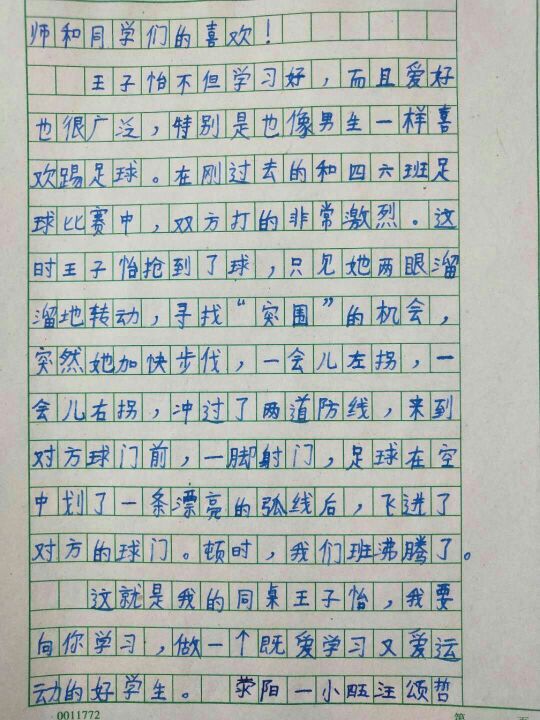 师和同学们的喜欢！
王子怡不但学习好，而且爱好
也很广泛，特别是也像男生一样喜
欢踢足球。在刚过去的和四六班足
球比赛中，双方打的非常激烈。这
时王子怡抢到了球，只见她两眼溜
溜地转动，寻找“突围”的机会，
突然她加快步伐，一会儿左拐，一
会儿右拐，冲过了两道防线，来到
对方球门前，一脚射门，足球在空
中划了一条漂亮的弧线后，飞进了
对方的球门。顿时，我们班沸腾了。
这就是我的同桌王子怡，我要
向你学习，做一个既爱学习又爱运
动的好学生。 荥阳一小四五汪颂哲
0011772